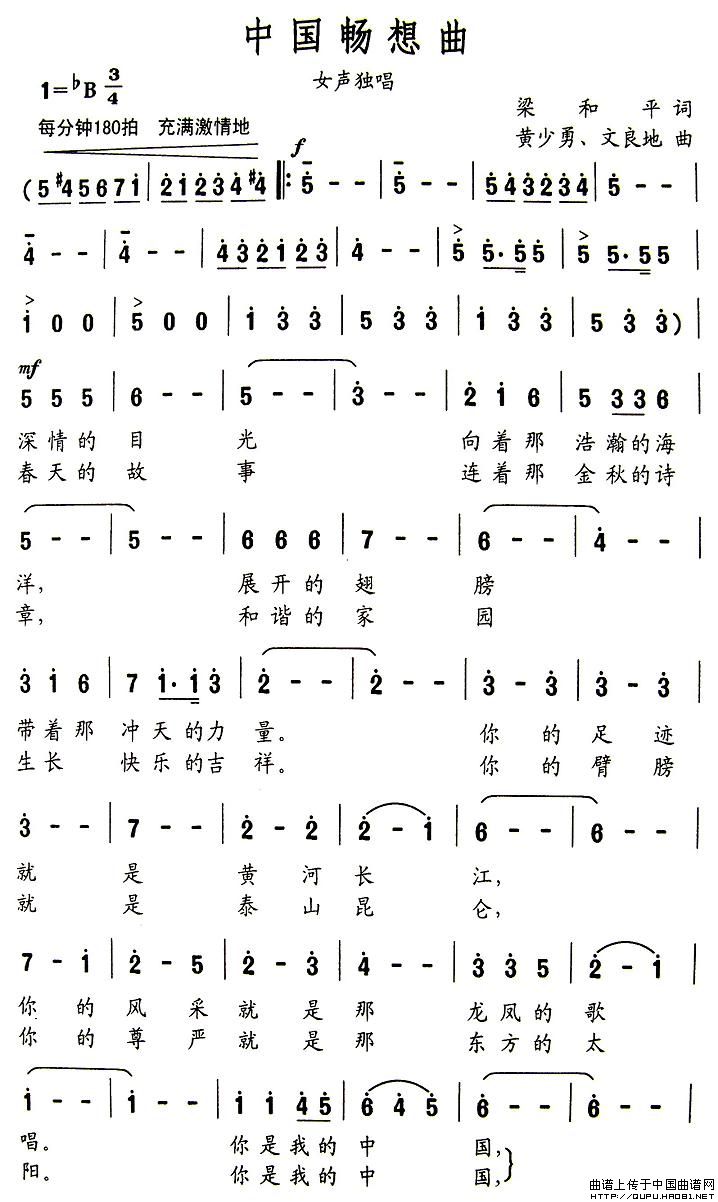 中国畅想曲
女声独唱
1=♭B 3/4
梁 和 平 词
每分钟180拍 充满激情地
黄少勇、文良地 曲
f
(5♯45671̇ | 2̇1̇2̇3̇4̇♯4̇ ‖: 5̇ - - | 5̇ - - | 5̇4̇3̇2̇3̇4̇ |
4̇ - - | 4̇ - - | 4̇3̇2̇1̇2̇3̇ | 4̇ - - | 5̇ 5̇·5̇5̇ | 5̇ 5̇·5̇5 |
1̇ 0 0 | 5 0 0 | 1̇ 3̇ 3̇ | 5 3̇ 3̇ | 1̇ 3̇ 3̇ | 5 3̇ 3̇) |
mf
5 5 5 | 6 - - | 5 - - | 3̇ - - | 2̇ 1̇ 6 | 5 3 3 6 |
深情的 目 光 向着那 浩瀚的海
春天的 故 事 连着那 金秋的诗
5 - - | 5 - - | 6 6 6 | 7 - - | 6 - - | 4̇ - - |
洋, 展开的 翅 膀
章, 和谐的 家 园
3̇ 1̇ 6 | 7 1̇·1̇ 3̇ | 2̇ - - | 2̇ - - | 3̇ - 3̇ | 3̇ - 3̇ |
带着那 冲天的力 量。 你 的 足 迹
生长 快乐的吉 祥。 你 的 臂 膀
3̇ - - | 7 - - | 2̇ - 2̇ | 2̇ - 1̇ | 6 - - | 6 - - |
就 是 黄 河 长 江,
就 是 泰 山 昆 仑,
7 - 1̇ | 2̇ - 5 | 2̇ - 3̇ | 4̇ - - | 3̇ 3̇ 5 | 2̇ - 1̇ |
你 的 风 采 就 是 那 龙凤的 歌
你 的 尊 严 就 是 那 东方的 太
1̇ - - | 1̇ - - | 1̇ 1̇ 4̇ 5̇ | 6̇ 4̇ 5̇ | 6̇ - - | 6̇ - - |
唱。 你是我的 中 国,
阳。 你是我的 中 国,
曲谱上传于中国曲谱网
HTTP://QUPU.HAO81.NET